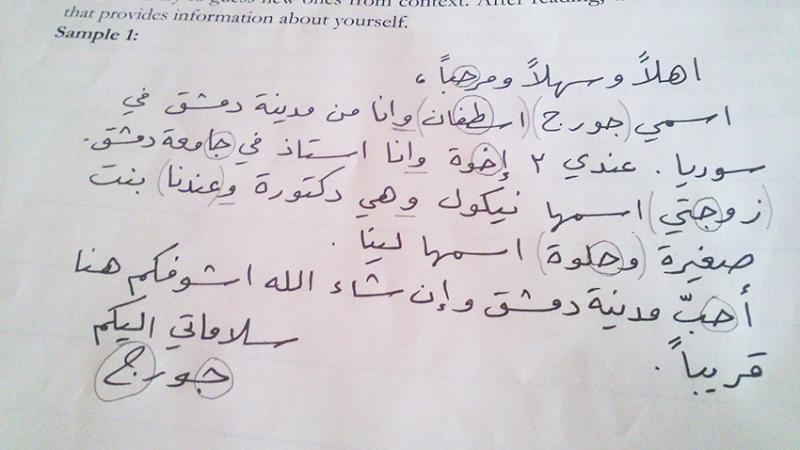 that provides information about yourself.
Sample 1:
اهلاً وسهلاً ومرحباً،
اسمي (جورج) (اسطفان) وانا من مدينة دمشق في
سوريا. عندي ٢ إخوة وانا استاذ في جامعة دمشق.
(زوجتي) اسمها نيكول وهي دكتورة و(عندنا) بنت
صغيرة (وحلوة) اسمها لينا.
أحبّ مدينة دمشق وإن شاء الله اشوفكم هنا
قريباً.
سلاماتي اليكم
جورج